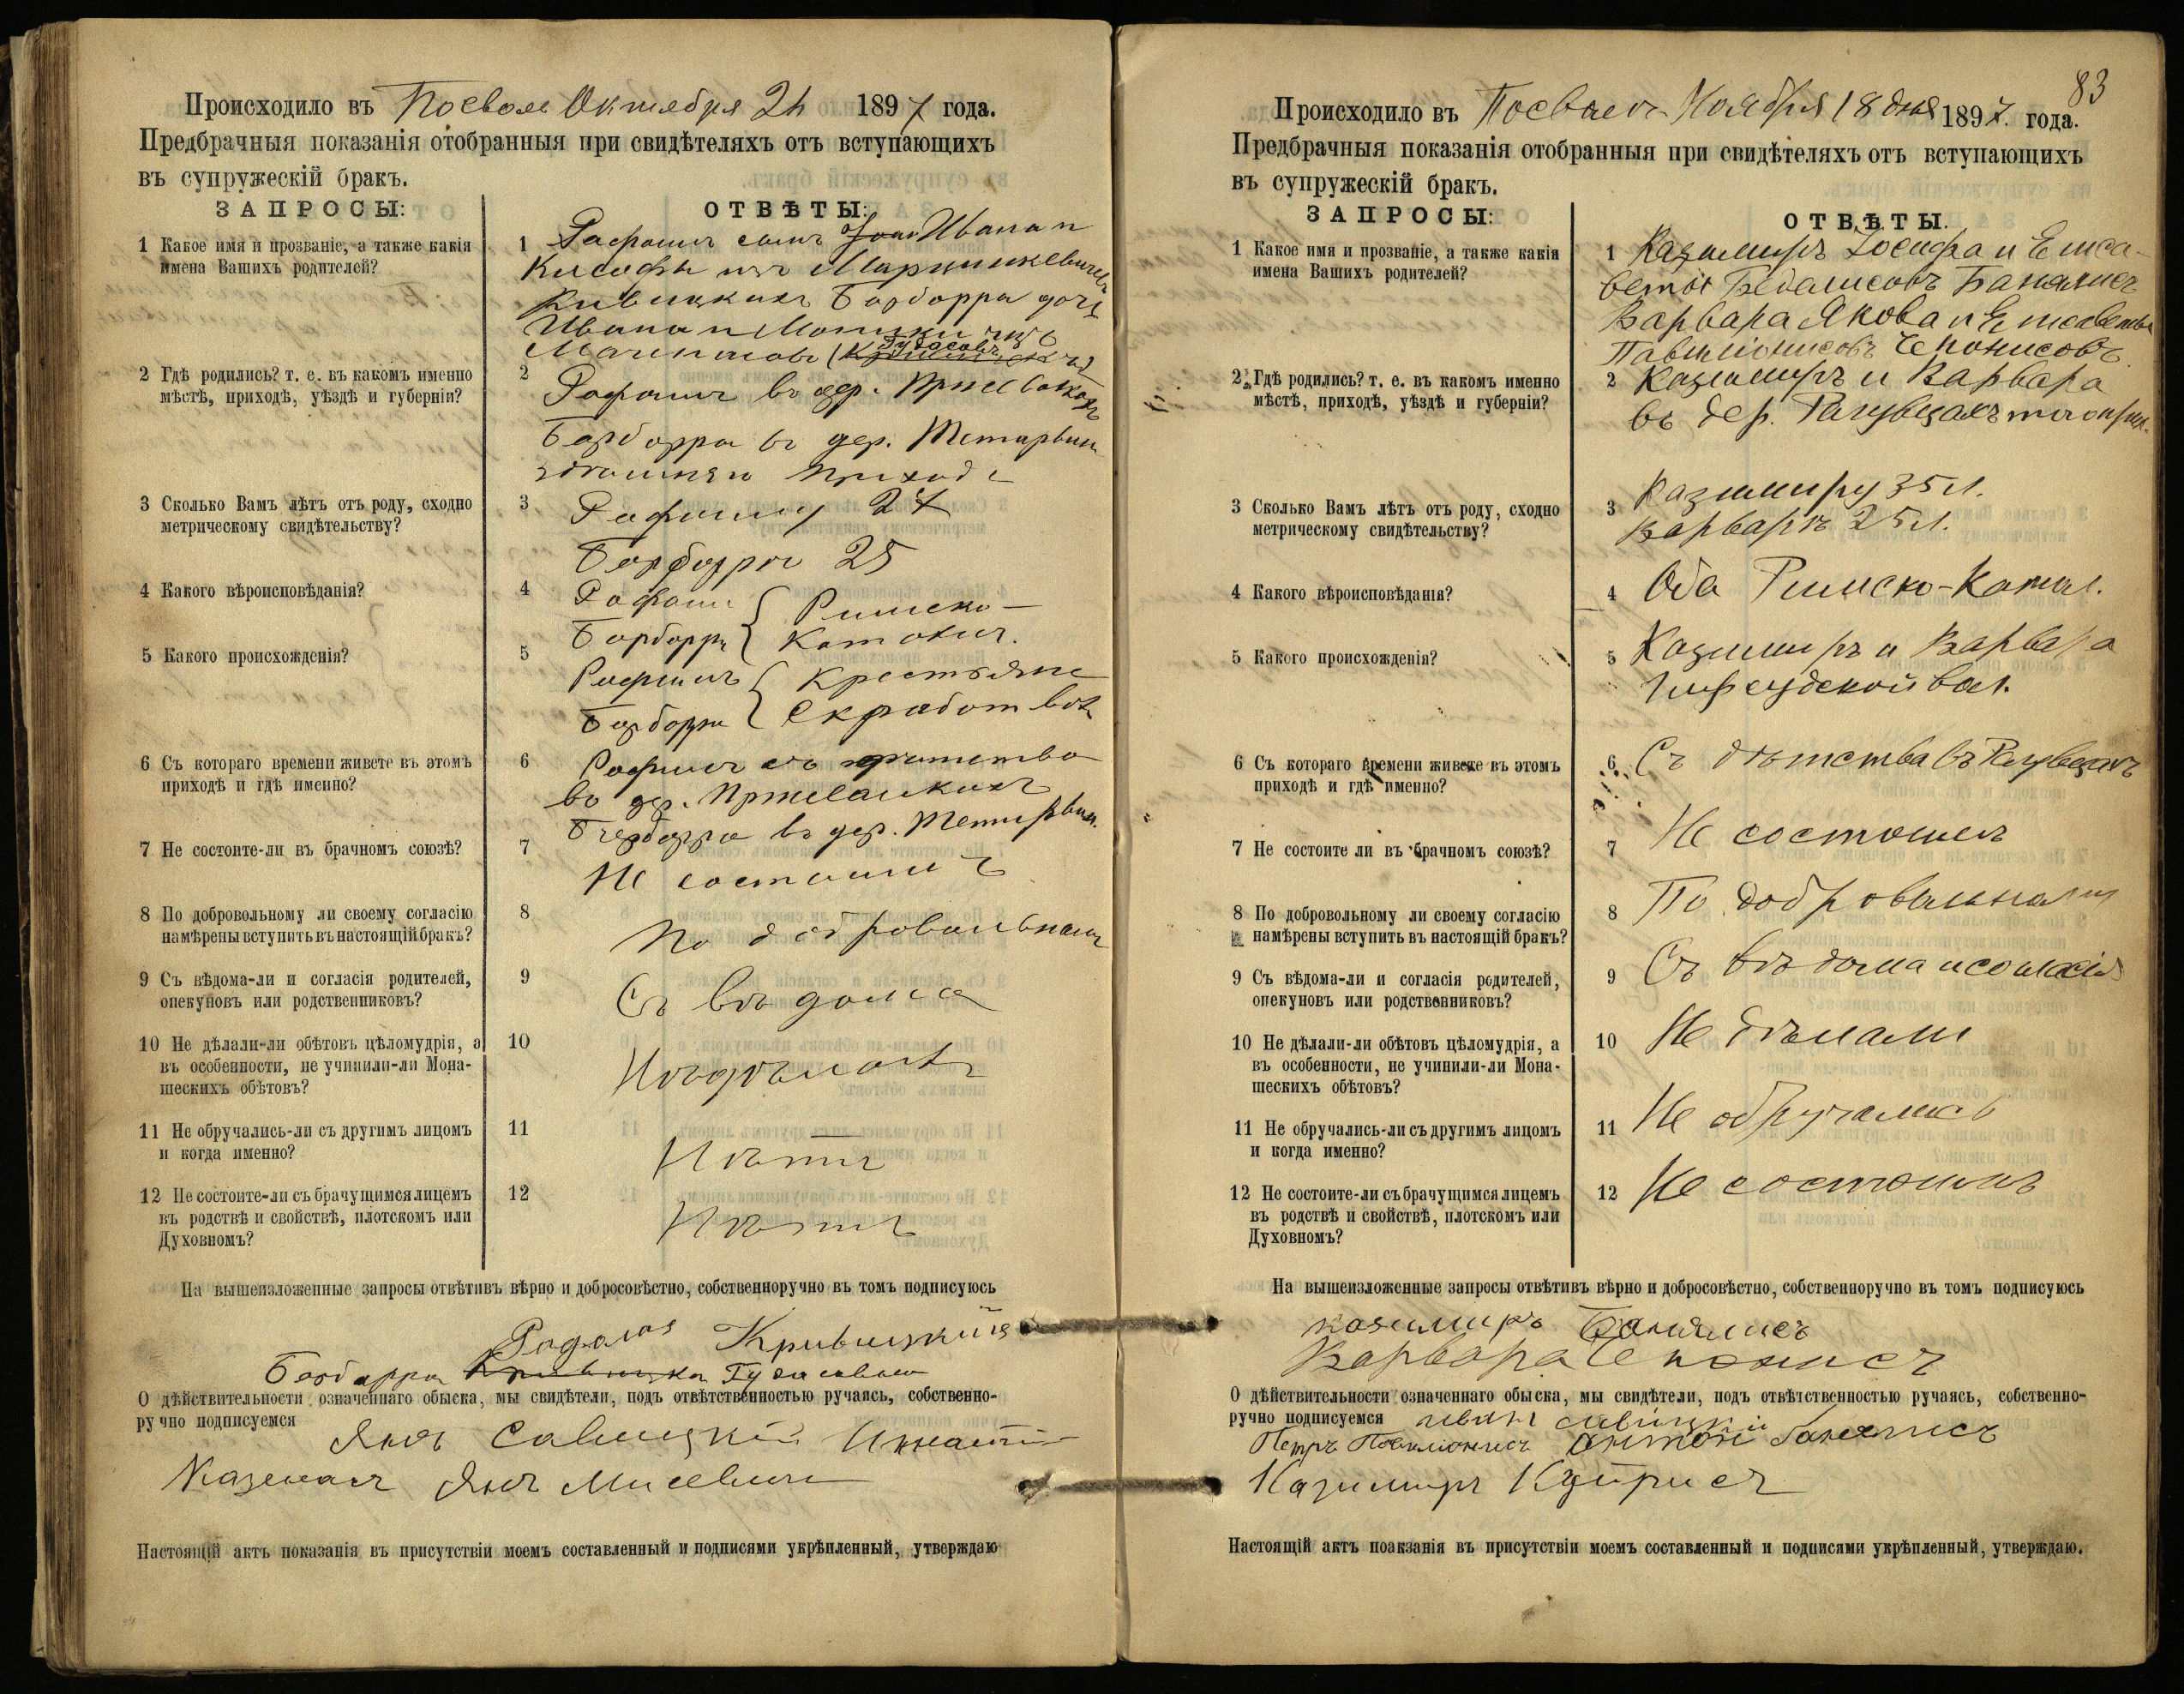 Происходило въ Посволѣ Октября 24 1897 года.
Предбрачныя показанія отобранныя при свидѣтеляхъ отъ вступающихъ
въ супружескій бракъ.
ЗАПРОСЫ:
ОТВѢТЫ:
1 Какое имя и прозваніе, а также какія
имена Вашихъ родителей?
1 Рафаилъ сынъ Ивана и
Барборра дочь
Ивана и
2 Гдѣ родились? т. е. въ какомъ именно
мѣстѣ, приходѣ, уѣздѣ и губерніи?
2 Рафаилъ въ дер.
Барборра въ дер.
прихода
3 Сколько Вамъ лѣтъ отъ роду, сходно
метрическому свидѣтельству?
3 Рафаилу 27
Барборра 25
4 Какого вѣроисповѣданія?
4 Рафаилъ Римско-
Барборра Католич.
5 Какого происхожденія?
5 Рафаилъ Крестьяне
Барборра
6 Съ котораго времени живете въ этомъ
приходѣ и гдѣ именно?
6 Рафаилъ съ
въ дер.
Барборра въ дер.
7 Не состоите-ли въ брачномъ союзѣ?
7 Не состоимъ
8 По добровольному ли своему согласію
намѣрены вступить въ настоящій бракъ?
8 По добровольному
9 Съ вѣдома-ли и согласія родителей,
опекуновъ или родственниковъ?
9 Съ вѣдома
10 Не дѣлали-ли обѣтовъ цѣломудрія, а
въ особенности, не учинили-ли Мона-
шескихъ обѣтовъ?
10
11 Не обручались-ли съ другимъ лицомъ
и когда именно?
11 Нѣтъ
12 Не состоите-ли съ брачущимся лицемъ
въ родствѣ и свойствѣ, плотскомъ или
Духовномъ?
12 Нѣтъ
На вышеизложенные запросы отвѣтивъ вѣрно и добросовѣстно, собственноручно въ томъ подписуюсь
Барборра
О дѣйствительности означеннаго обыска, мы свидѣтели, подъ отвѣтственностью ручаясь, собственно-
ручно подписуемся
Янъ Савицкій
Янъ
Настоящій актъ показанія въ присутствіи моемъ составленный и подписями укрѣпленный, утверждаю
83
Происходило въ Посволѣ Ноября 18 дня 1897. года.
Предбрачныя показанія отобранныя при свидѣтеляхъ отъ вступающихъ
въ супружескій бракъ.
ЗАПРОСЫ:
ОТВѢТЫ.
1 Какое имя и прозваніе, а также какія
имена Вашихъ родителей?
1 Казимиръ Іосифа и Елиса-
веты Банялисъ
Варвара Якова и Елисаветы
2 Гдѣ родились? т. е. въ какомъ именно
мѣстѣ, приходѣ, уѣздѣ и губерніи?
2 Казимиръ и Варвара
въ дер.
3 Сколько Вамъ лѣтъ отъ роду, сходно
метрическому свидѣтельству?
3 Казимиру 35 л.
Варварѣ 25 л.
4 Какого вѣроисповѣданія?
4 Оба Римско-Катол.
5 Какого происхожденія?
5 Казимиръ и Варвара
вол.
6 Съ котораго времени живете въ этомъ
приходѣ и гдѣ именно?
6 Съ дѣтства въ
7 Не состоите ли въ брачномъ союзѣ?
7 Не состоимъ
8 По добровольному ли своему согласію
намѣрены вступить въ настоящій бракъ?
8 По добровольному
9 Съ вѣдома-ли и согласія родителей,
опекуновъ или родственниковъ?
9 Съ вѣдома и согласія
10 Не дѣлали-ли обѣтовъ цѣломудрія, а
въ особенности, не учинили-ли Мона-
шескихъ обѣтовъ?
10 Не дѣлали
11 Не обручались-ли съ другимъ лицомъ
и когда именно?
11 Не обручались
12 Не состоите-ли съ брачущимся лицемъ
въ родствѣ и свойствѣ, плотскомъ или
Духовномъ?
12 Не состоимъ
На вышеизложенные запросы отвѣтивъ вѣрно и добросовѣстно, собственноручно въ томъ подписуюсь
Казимиръ Банялисъ
Варвара Чепонисъ
О дѣйствительности означеннаго обыска, мы свидѣтели, подъ отвѣтственностью ручаясь, собственно-
ручно подписуемся Иванъ Савицкій
Петръ Антонъ Банялисъ
Казимиръ
Настоящій актъ поакзанія въ присутствіи моемъ составленный и подписями укрѣпленный, утверждаю.